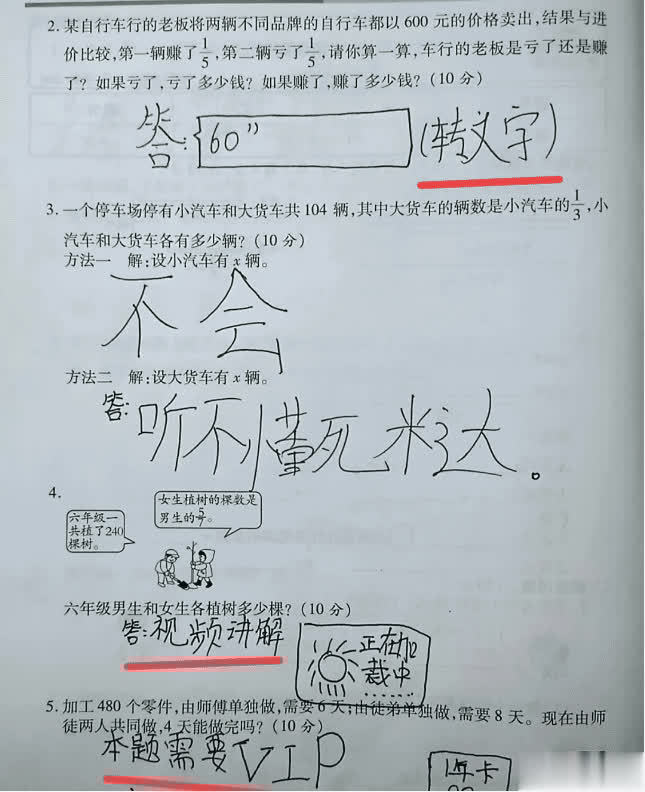 2. 某自行车行的老板将两辆不同品牌的自行车都以 600 元的价格卖出,结果与进
价比较,第一辆赚了1/5,第二辆亏了1/5,请你算一算,车行的老板是亏了还是赚
了？如果亏了,亏了多少钱？如果赚了,赚了多少钱？(10 分)
答: 60” (转文字)
3. 一个停车场停有小汽车和大货车共 104 辆,其中大货车的辆数是小汽车的1/3,小
汽车和大货车各有多少辆？(10 分)
方法一 解:设小汽车有 x 辆。
不会
方法二 解:设大货车有 x 辆。
答: 听不懂死米达。
4.
女生植树的棵数是
男生的
六年级一
共植了240
棵树。
六年级男生和女生各植树多少棵？(10 分)
答:视频讲解
正在加
载中......
5. 加工 480 个零件,由师傅单独做,需要 6 天;由徒弟单独做,需要 8 天。现在由师
徒两人共同做,4 天能做完吗？(10 分)
本题需要VIP
1年卡